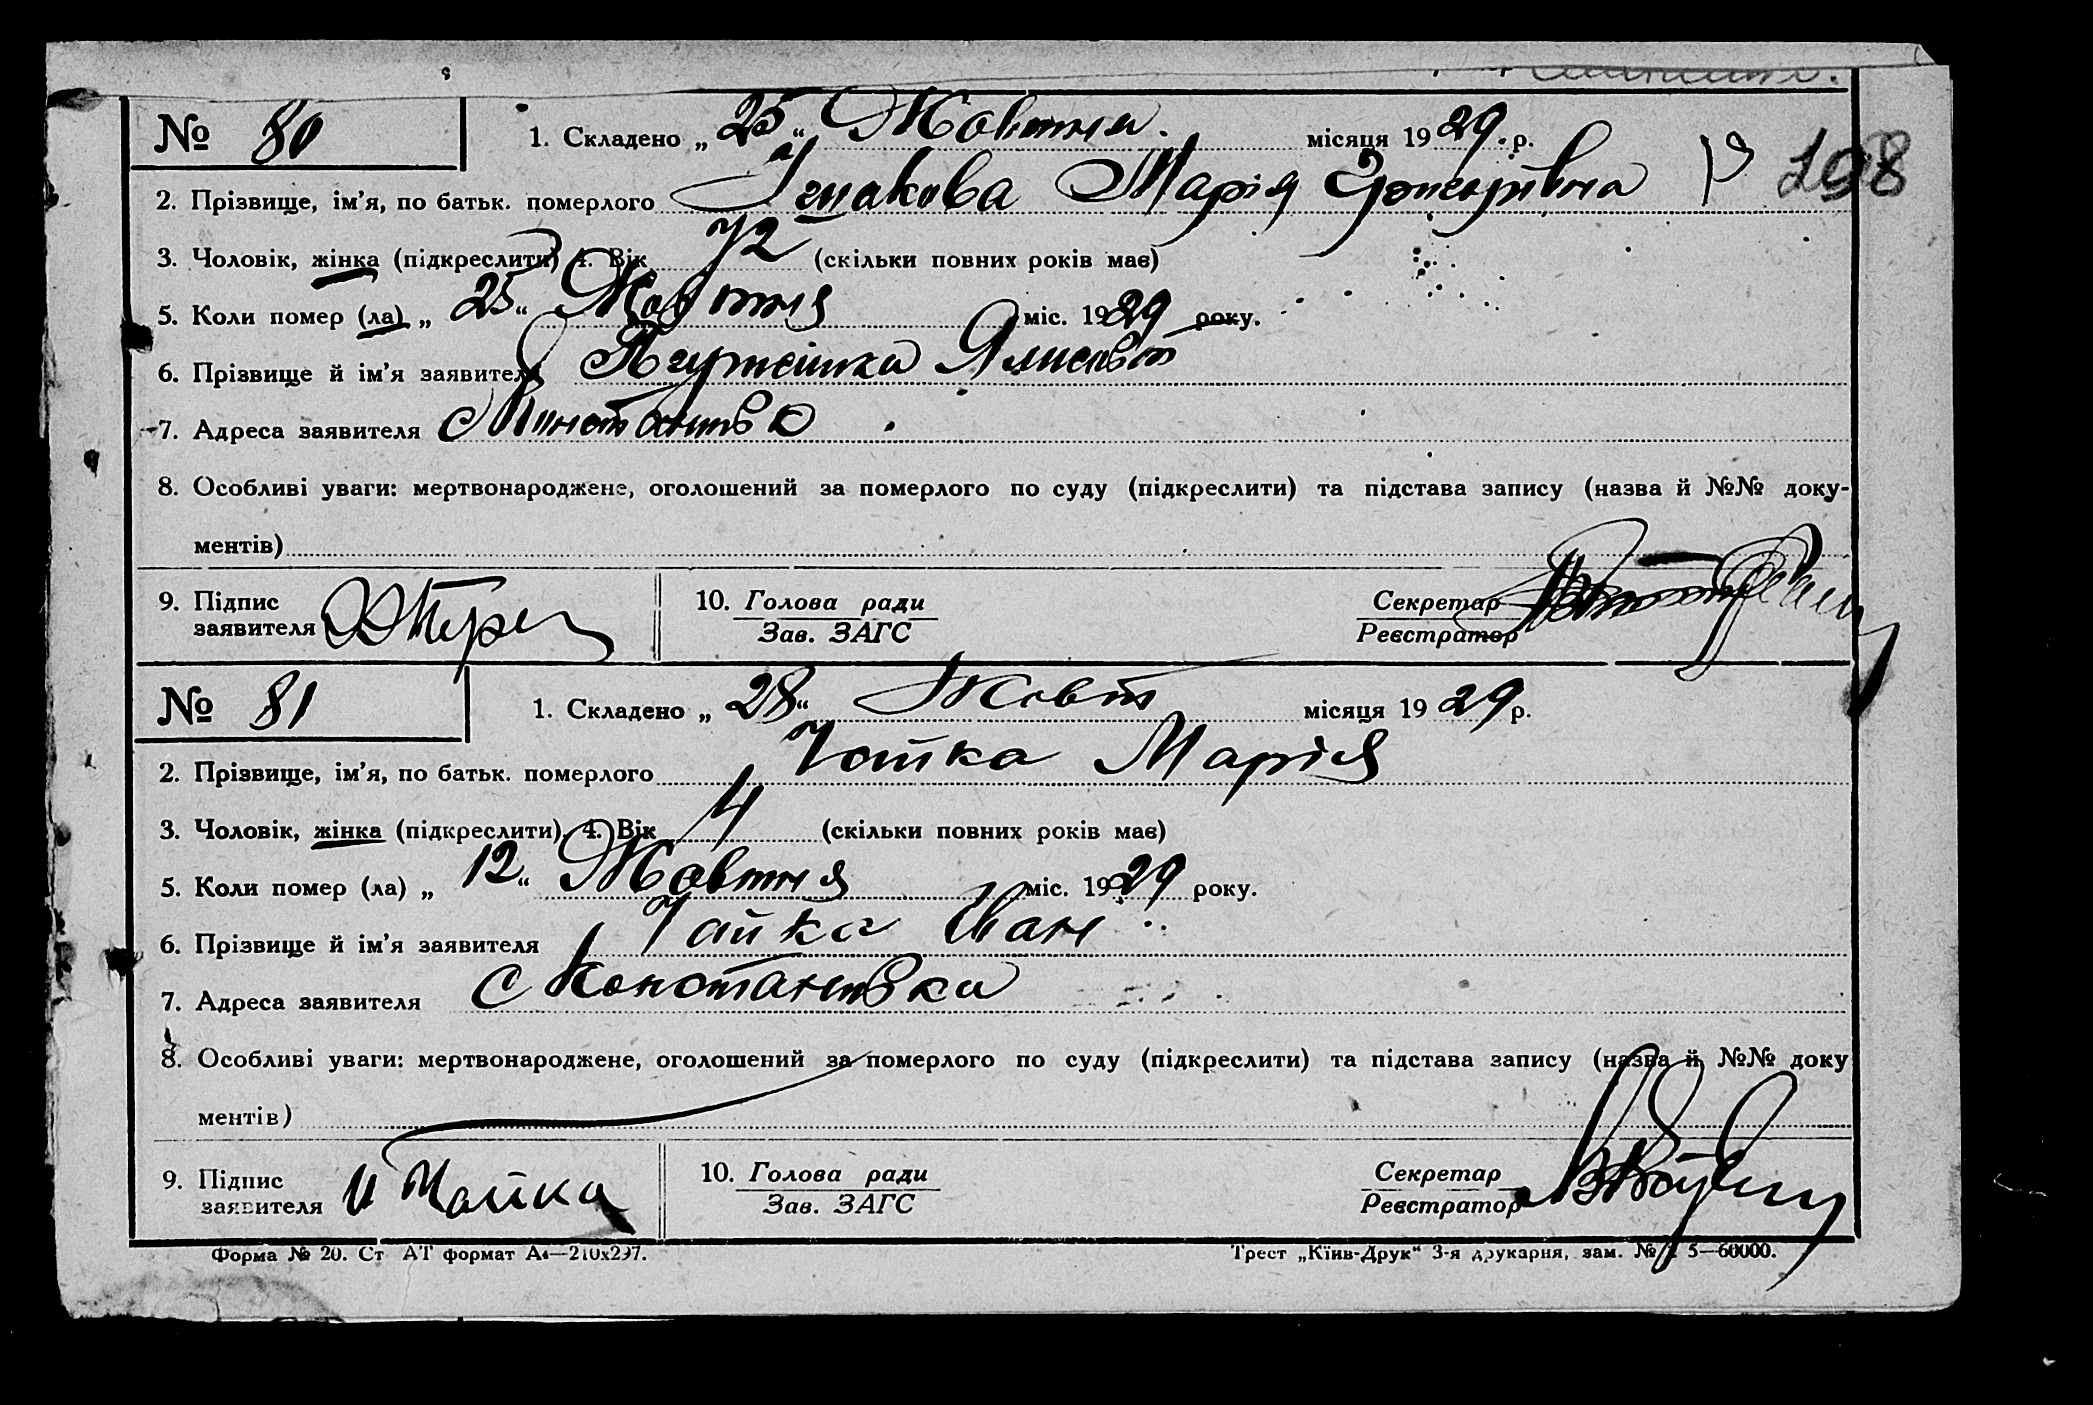 № 80
1. Складено „ 25 “ Жовтня місяця 1929 р.
198
2. Прізвище, ім’я, по батьк. померлого Марія Григорівна
3. Чоловік, жінка (підкреслити) 4. Вік 72 (скільки повних років має)
5. Коли помер (ла) „ 25 “ Жовтня міс. 1929 року.
6. Прізвище й ім’я заявителя
7. Адреса заявителя с
8. Особливі уваги: мертвонароджене, оголошений за померлого по суду (підкреслити) та підстава запису (назва й №№ доку-
ментів)
9. Підпис заявителя
10. Голова ради
Зав. ЗАГС
Секретар
Реєстратор
№ 81
1. Складено „ 28 “ Жовт місяця 1929 р.
2. Прізвище, ім’я, по батьк. померлого Чайка Марія
3. Чоловік, жінка (підкреслити) 4. Вік 4 (скільки повних років має)
5. Коли помер (ла) „ 12 “ Жовтня міс. 1929 року.
6. Прізвище й ім’я заявителя Чайка Иван
7. Адреса заявителя с Константівка
8. Особливі уваги: мертвонароджене, оголошений за померлого по суду (підкреслити) та підстава запису (назва й №№ доку
ментів)
9. Підпис заявителя И Чайка
10. Голова ради
Зав. ЗАГС
Секретар
Реєстратор
Форма № 20. Ст АТ формат А4—210х297.
Трест „Київ-Друк“ 3-я друкарня, зам. № 5—60000.